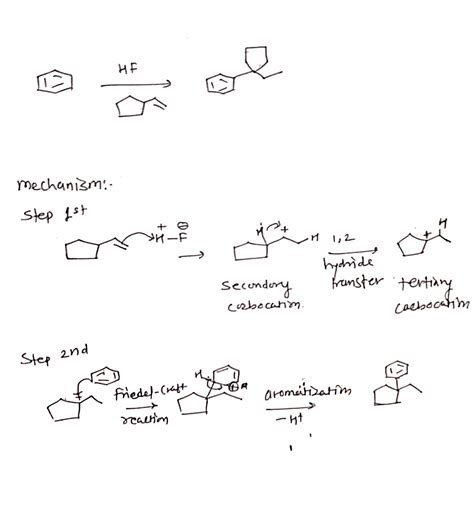 HF
mechanism:-
Step 1st
+ ⊖
H-F
H + H
1,2
hydride
transter
H
+
secondory
carbocatim.
tertiary
caebocatim
Step 2nd
+
Friedel-Craft
reactim
H
⊕ H
aromatizatim
-H+